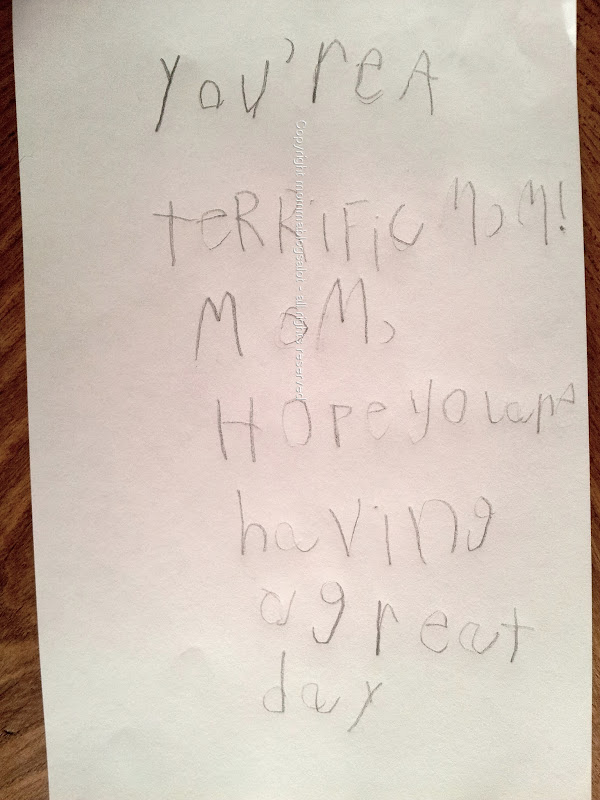 you're A
teRRiFic MoM!
MoM,
Hope you are
having
a great
day
Copyright mommasblogsalot - all rights reserved